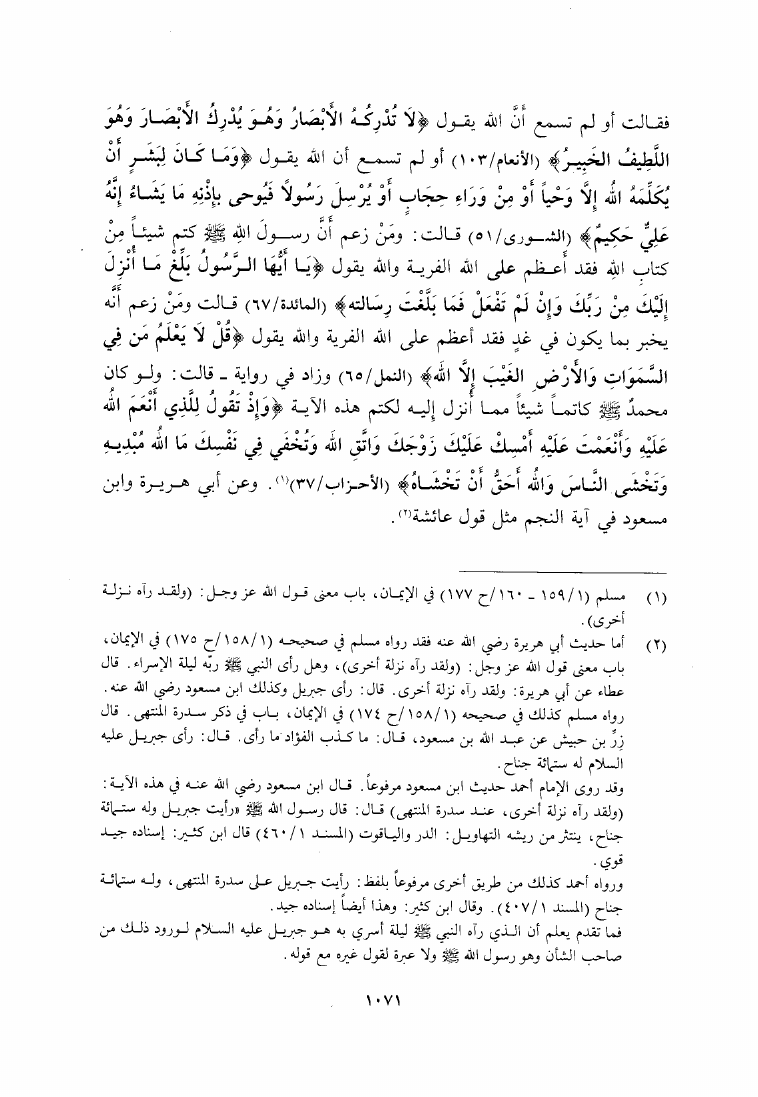 فقالت أو لم تسمع أَنَّ الله يقول ﴿لَا تُدْرِكُهُ الأَبْصَارُ وَهُوَ يُدْرِكُ الأَبْصَارَ وَهُوَ
اللَّطِيفُ الخَبِيرُ﴾ (الأنعام/١٠٣) أو لم تسمع أن الله يقول ﴿وَمَا كَانَ لِبَشَرٍ أَنْ
يُكَلِّمَهُ اللهُ إِلَّا وَحْياً أَوْ مِنْ وَرَاءِ حِجَابٍ أَوْ يُرْسِلَ رَسُولاً فَيُوحى بِإِذْنِهِ مَا يَشَاءُ إِنَّهُ
عَلِيٌّ حَكِيمٌ﴾ (الشورى/٥١) قالت: ومَنْ زعم أَنَّ رسولَ اللهِ ﷺ كتم شيئاً مِنْ
كتابِ اللهِ فقد أَعظم على الله الفرية والله يقول ﴿يَا أَيُّهَا الرَّسُولُ بَلِّغْ مَا أُنْزِلَ
إِلَيْكَ مِنْ رَبِّكَ وَإِنْ لَمْ تَفْعَلْ فَمَا بَلَّغْتَ رِسَالته﴾ (المائدة/٦٧) قالت ومَنْ زعم أنَّه
يخبر بما يكون في غدٍ فقد أعظم على الله الفرية والله يقول ﴿قُلْ لَا يَعْلَمُ مَن فِي
السَّمَوَاتِ وَالأَرْضِ الغَيْبَ إِلَّا اللهُ﴾ (النمل/٦٥) وزاد في رواية ـ قالت: ولو كان
محمدٌ ﷺ كاتماً شيئاً مما أُنزل إليه لكتم هذه الآية ﴿وَإِذْ تَقُولُ لِلَّذِي أَنْعَمَ اللهُ
عَلَيْهِ وَأَنْعَمْتَ عَلَيْهِ أَمْسِكْ عَلَيْكَ زَوْجَكَ وَاتَّقِ اللهَ وَتُخْفِي فِي نَفْسِكَ مَا اللهُ مُبْدِيهِ
وَتَخْشَى النَّاسَ وَاللهُ أَحَقُّ أَنْ تَخْشَاهُ﴾ (الأحزاب/٣٧)(١). وعن أبي هريرة وابن
مسعود في آية النجم مثل قول عائشة(٢).
(١) مسلم (١/ ١٥٩ ـ ١٦٠/ح ١٧٧) في الإيمان، باب معنى قول الله عز وجل: (ولقد رآه نزلة
أخرى).
(٢) أما حديث أبي هريرة رضي الله عنه فقد رواه مسلم في صحيحه (١/ ١٥٨/ح ١٧٥) في الإيمان،
باب معنى قول الله عز وجل: (ولقد رآه نزلة أخرى)، وهل رأى النبي ﷺ ربّه ليلة الإسراء. قال
عطاء عن أبي هريرة: ولقد رآه نزلة أخرى. قال: رأى جبريل وكذلك ابن مسعود رضي الله عنه.
رواه مسلم كذلك في صحيحه (١/ ١٥٨/ح ١٧٤) في الإيمان، باب في ذكر سدرة المنتهى. قال
زِرُّ بن حبيش عن عبد الله بن مسعود، قال: ما كذب الفؤاد ما رأى. قال: رأى جبريل عليه
السلام له ستمائة جناح.
وقد روى الإمام أحمد حديث ابن مسعود مرفوعاً. قال ابن مسعود رضي الله عنه في هذه الآية:
(ولقد رآه نزلة أخرى، عند سدرة المنتهى) قال: قال رسول الله ﷺ «رأيت جبريل وله ستمائة
جناح، ينتثر من ريشه التهاويل: الدر والياقوت (المسند ١/ ٤٦٠) قال ابن كثير: إسناده جيد
قوي.
ورواه أحمد كذلك من طريق أخرى مرفوعاً بلفظ: رأيت جبريل على سدرة المنتهى، وله ستمائة
جناح (المسند ١/ ٤٠٧). وقال ابن كثير: وهذا أيضاً إسناده جيد.
فما تقدم يعلم أن الذي رآه النبي ﷺ ليلة أسري به هو جبريل عليه السلام لورود ذلك من
صاحب الشأن وهو رسول الله ﷺ ولا عبرة لقول غيره مع قوله.
١٠٧١